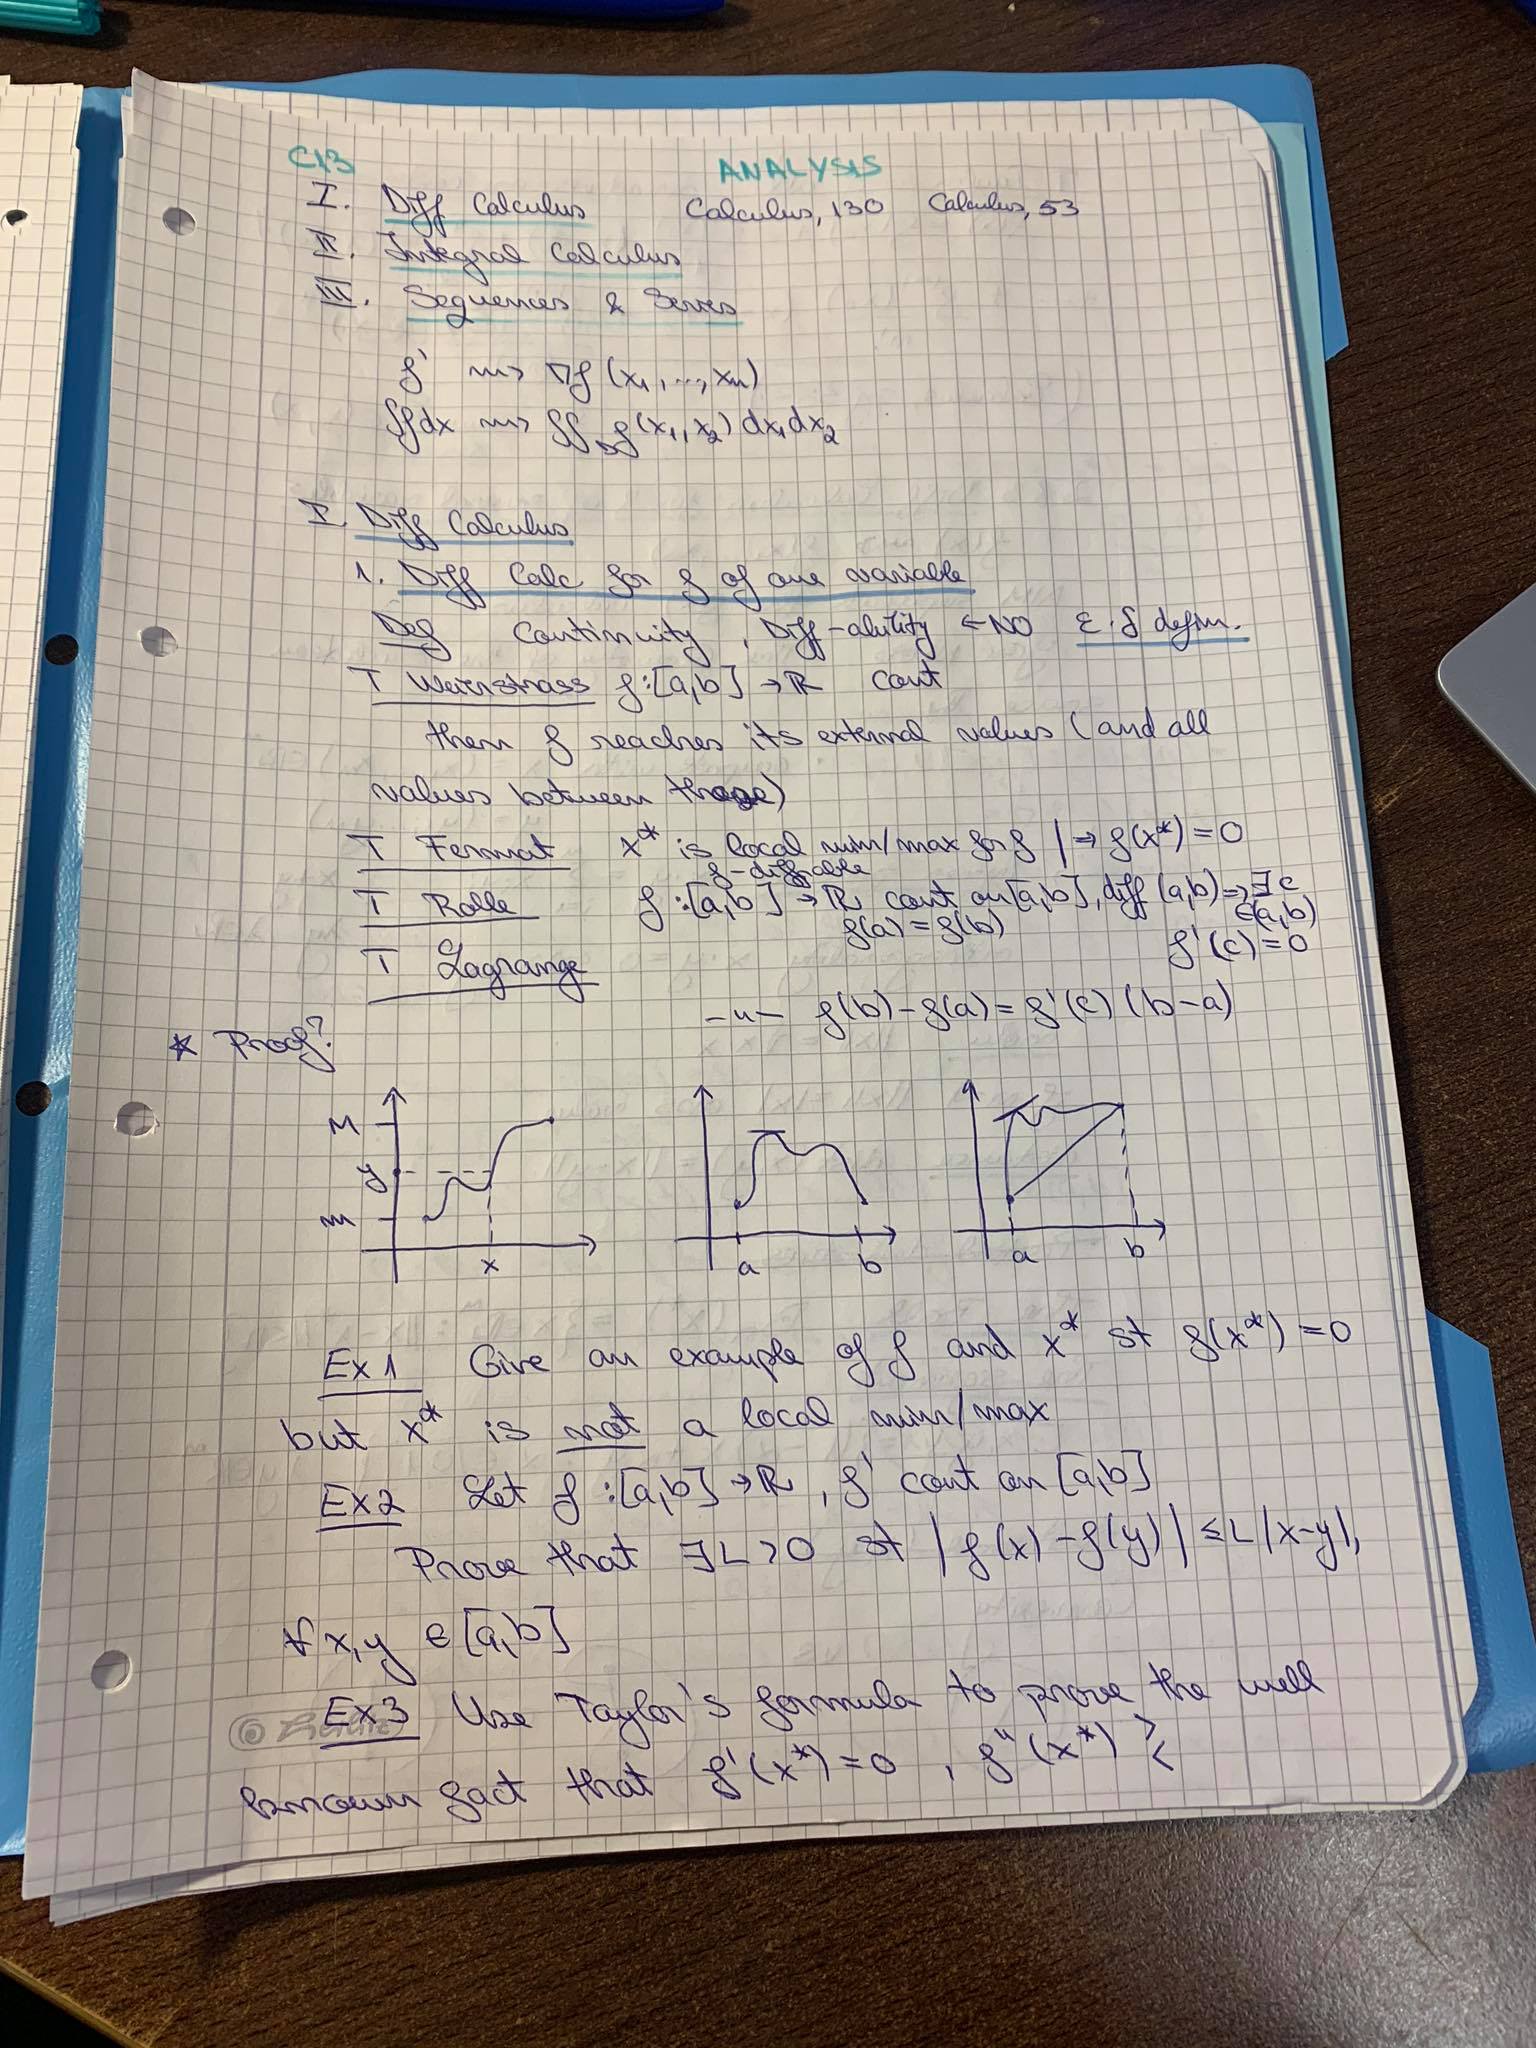 C13 ANALYSIS
I. Diff Calculus Calculus, 130 Calculus, 53
II. Integral Calculus
III. Sequences & Series
f' ⇝ ∇f(x₁,...,xₙ)
∫fdx ⇝ ∬_D f(x₁,x₂)dx₁dx₂
I. Diff Calculus
1. Diff Calc for f of one variable
Def Continuity, Diff-ability ← NO ε-δ defin.
T Weirstrass f:[a,b]→ℝ cont
then f reaches its external values (and all
values between those)
T Fermat x* is local min/max for f | ⇒ f(x*)=0
f-diffable
T Rolle f:[a,b]→ℝ cont on [a,b], diff (a,b) ⇒ ∃c
f(a)=f(b) ∈(a,b)
f'(c)=0
T Lagrange
-"- f(b)-f(a)=f'(c)(b-a)
* Proof?
M
y
m
x
a b
a b
Ex1 Give an example of f and x* st f(x*)=0
but x* is not a local min/max
Ex2 Let f:[a,b]→ℝ, f' cont on [a,b]
Prove that ∃L>0 st |f(x)-f(y)|≤L|x-y|,
∀x,y ∈[a,b]
Ex3 Use Taylor's formula to prove the well
known fact that f'(x*)=0, f"(x*) ≷